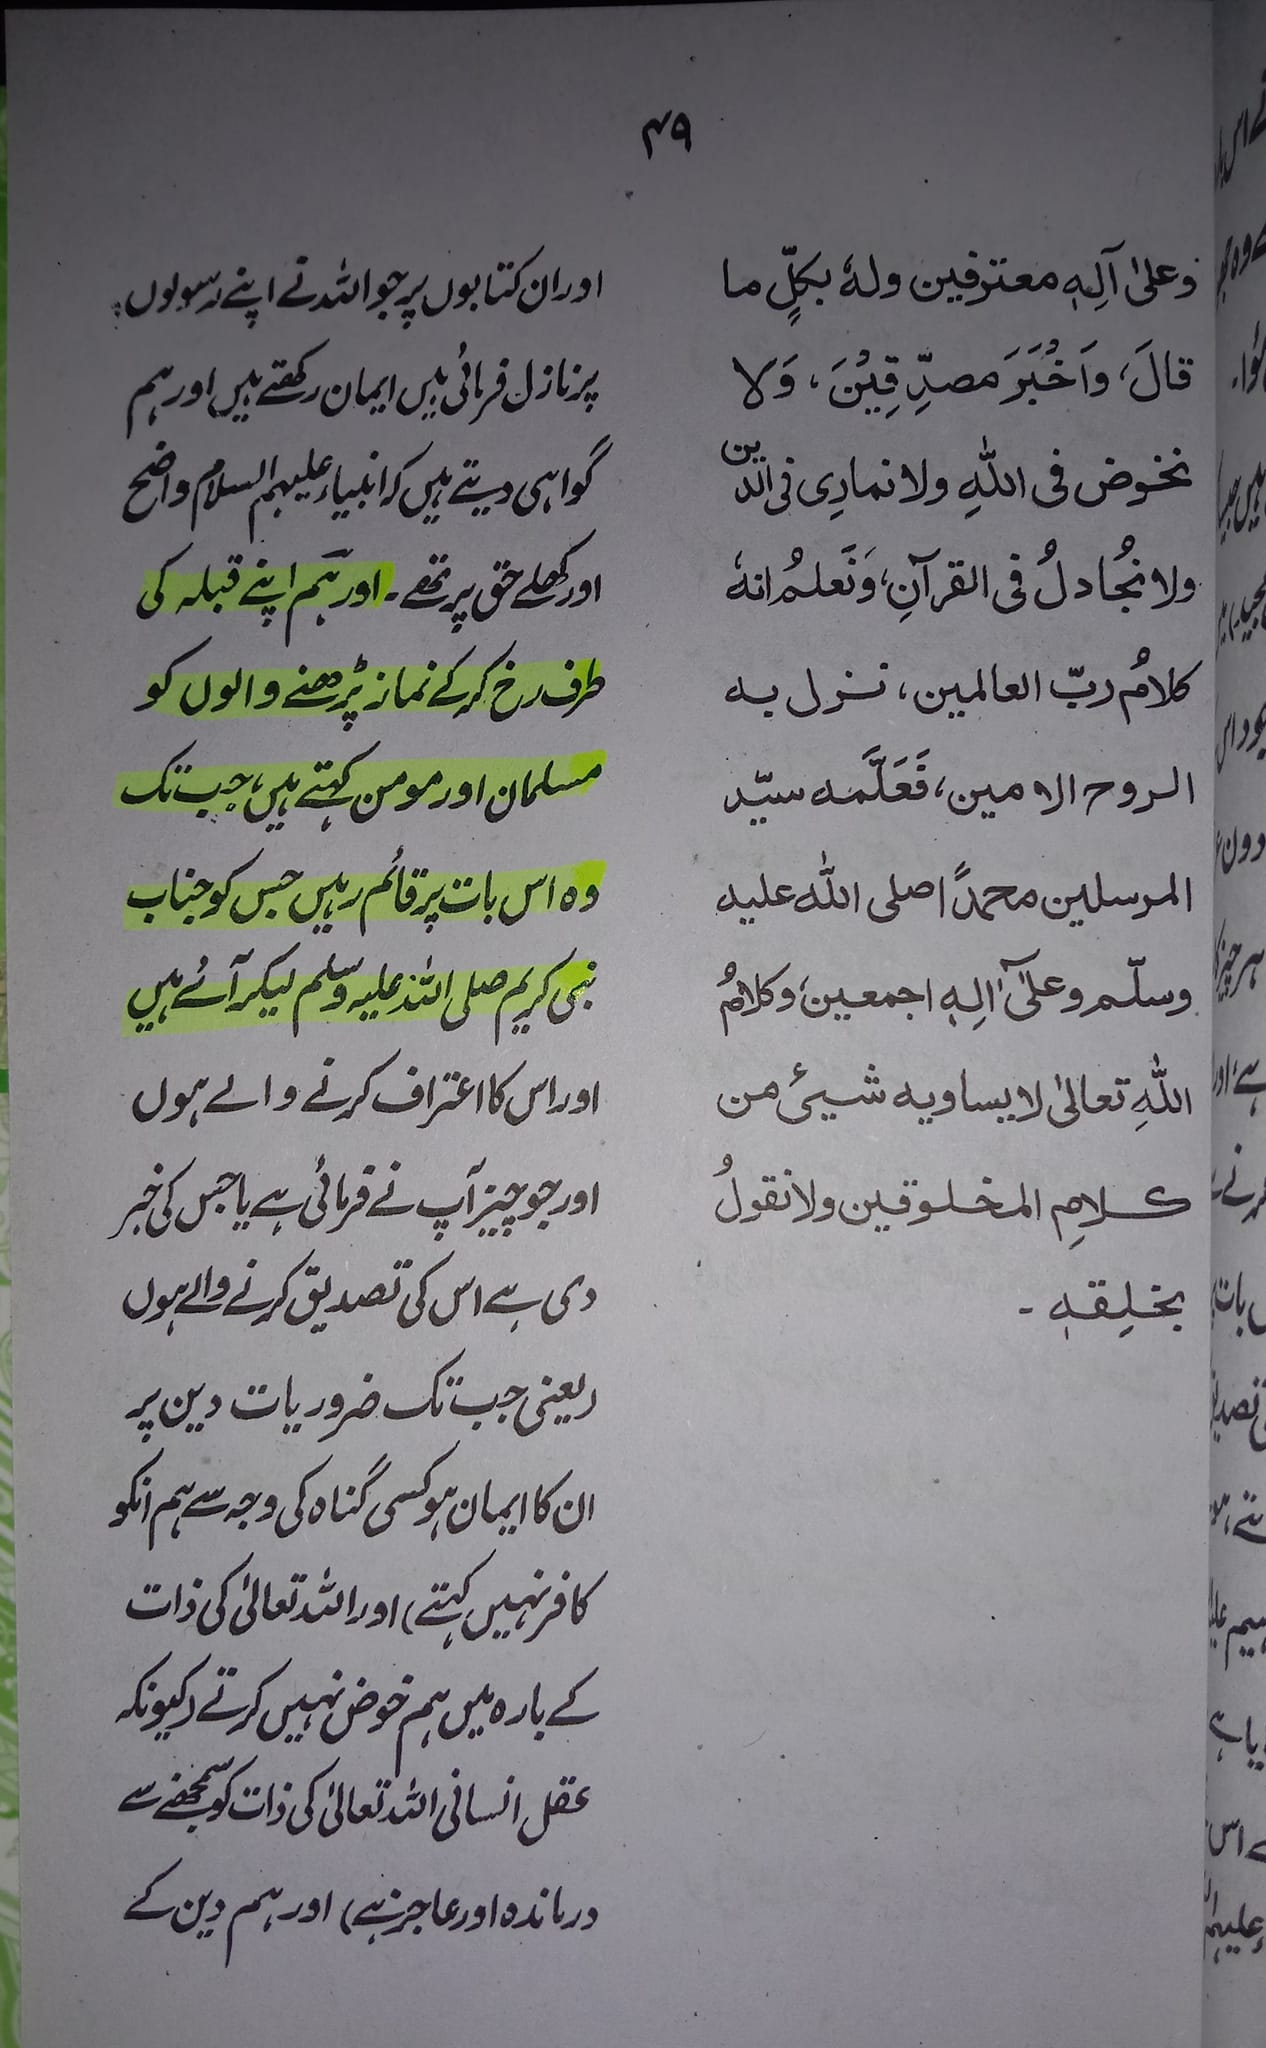 ۴۹
وعلیٰ آلِہٖ معترفین ولهٗ بکلٍّ ما
قالَ، واَخُبَرَ مصدِّقِیْنَ، وَلا
نخوض فی اللّٰہِ ولا نمارِی فی الدین
ولا نُجادلُ فی القرآنِ، وَنَعلمُ انہٗ
کلامُ ربّ العالمین، نزل بہ
الروح الامین، فَعَلَّمَہ سیّد
المرسلین محمدًا صلی اللّٰہ علیہ
وسلّم وعلیٰٓ اٰلِہٖ اجمعین، وکلامُ
اللّٰہِ تعالیٰ لا یساویہ شیئ من
کلامِ المخلوقین ولا نقولُ
بخلِقہٖ ۔
اور ان کتابوں پر جو اللہ نے اپنے رسولوں
پر نازل فرمائی ہیں ایمان رکھتے ہیں اور ہم
گواہی دیتے ہیں کہ انبیاء علیہم السلام واضح
اور کھلے حق پر تھے ۔ اور ہم اپنے قبلہ کی
طرف رخ کر کے نماز پڑھنے والوں کو
مسلمان اور مومن کہتے ہیں، جب تک
وہ اس بات پر قائم رہیں جس کو جناب
نبی کریم صلی اللہ علیہ وسلم لیکر آئے ہیں
اور اس کا اعتراف کرنے والے ہوں
اور جو چیز آپ نے فرمائی ہے یا جس کی خبر
دی ہے اس کی تصدیق کرنے والے ہوں
(یعنی جب تک ضروریات دین پر
ان کا ایمان ہو کسی گناہ کی وجہ سے ہم انکو
کافر نہیں کہتے) اور اللہ تعالیٰ کی ذات
کے بارہ میں ہم خوض نہیں کرتے (کیونکہ
عقل انسانی اللہ تعالیٰ کی ذات کو سمجھنے سے
درماندہ اور عاجز ہے) اور ہم دین کے